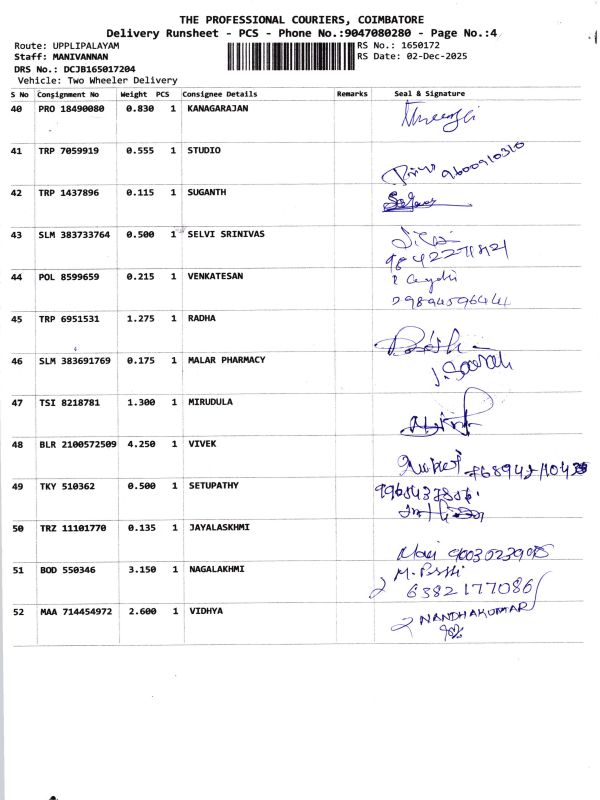 THE PROFESSIONAL COURIERS, COIMBATORE
Delivery Runsheet - PCS - Phone No.:9047080280 - Page No.:4
Route: UPPLIPALAYAM
RS No.: 1650172
Staff: MANIVANNAN
RS Date: 02-Dec-2025
DRS No.: DCJB165017204
Vehicle: Two Wheeler Delivery
S No Consignment No Weight PCS Consignee Details Remarks Seal & Signature
40 PRO 18490080 0.830 1 KANAGARAJAN
41 TRP 7059919 0.555 1 STUDIO
9600910310
42 TRP 1437896 0.115 1 SUGANTH
43 SLM 383733764 0.500 1 SELVI SRINIVAS
9842271821
44 POL 8599659 0.215 1 VENKATESAN
9894596444
45 TRP 6951531 1.275 1 RADHA
46 SLM 383691769 0.175 1 MALAR PHARMACY
47 TSI 8218781 1.300 1 MIRUDULA
48 BLR 2100572509 4.250 1 VIVEK
49 TKY 510362 0.500 1 SETUPATHY
50 TRZ 11101770 0.135 1 JAYALASKHMI
51 BOD 550346 3.150 1 NAGALAKHMI
6382177086
52 MAA 714454972 2.600 1 VIDHYA
NANDHAKUMAR